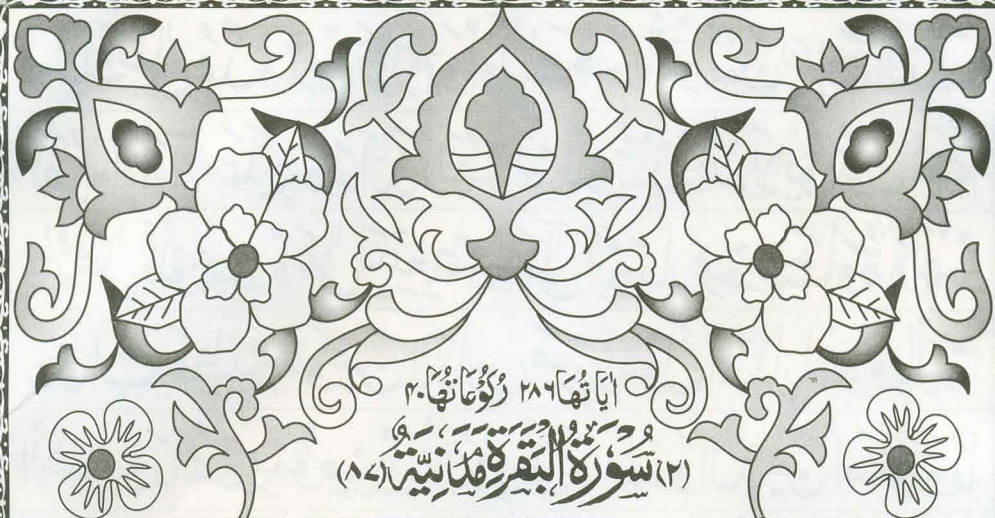 اٰيَاتُهَا ٢٨٦ رُكُوْعَاتُهَا ٤٠
(٢) سُوْرَةُ الْبَقَرَةِ مَدَنِيَّةٌ (٨٧)